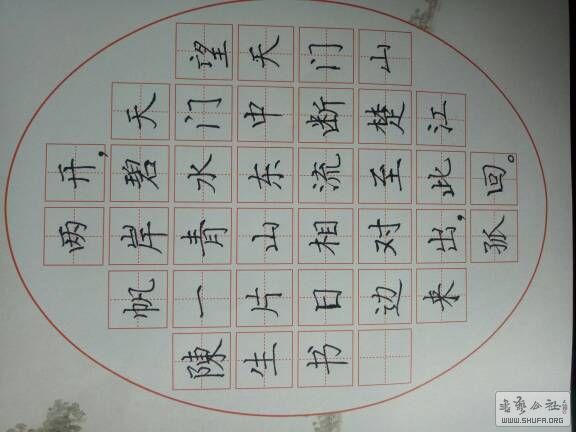 望天门山
天门中断楚江
开，碧水东流至此回。
两岸青山相对出，孤
帆一片日边来
陳生书
书艺公社
WWW.SHUFA.ORG